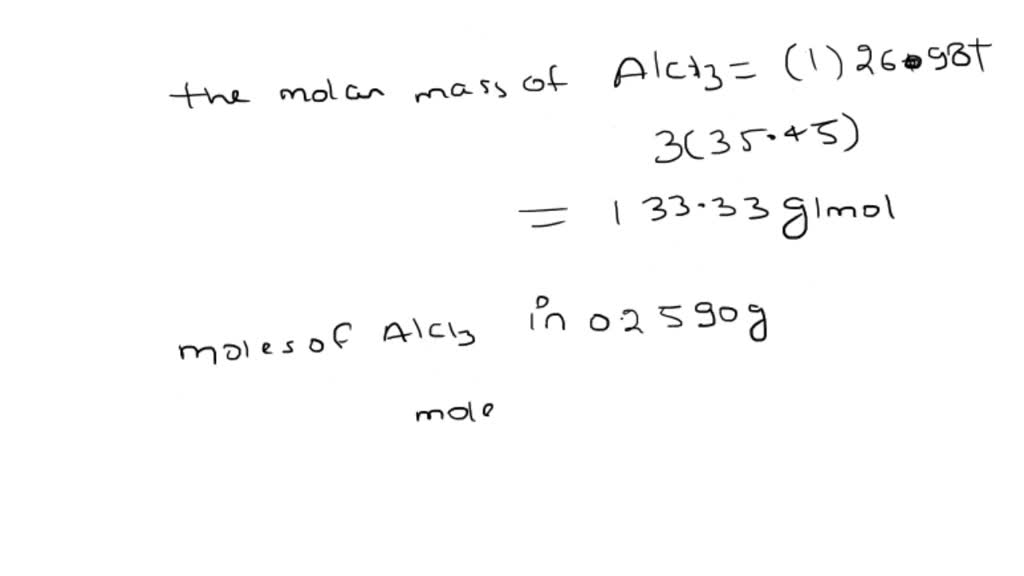 the molar mass of AlCl3 = (1) 26.98+
3(35.45)
= 133.33 g/mol
moles of AlCl3 in 0.2590g
mole